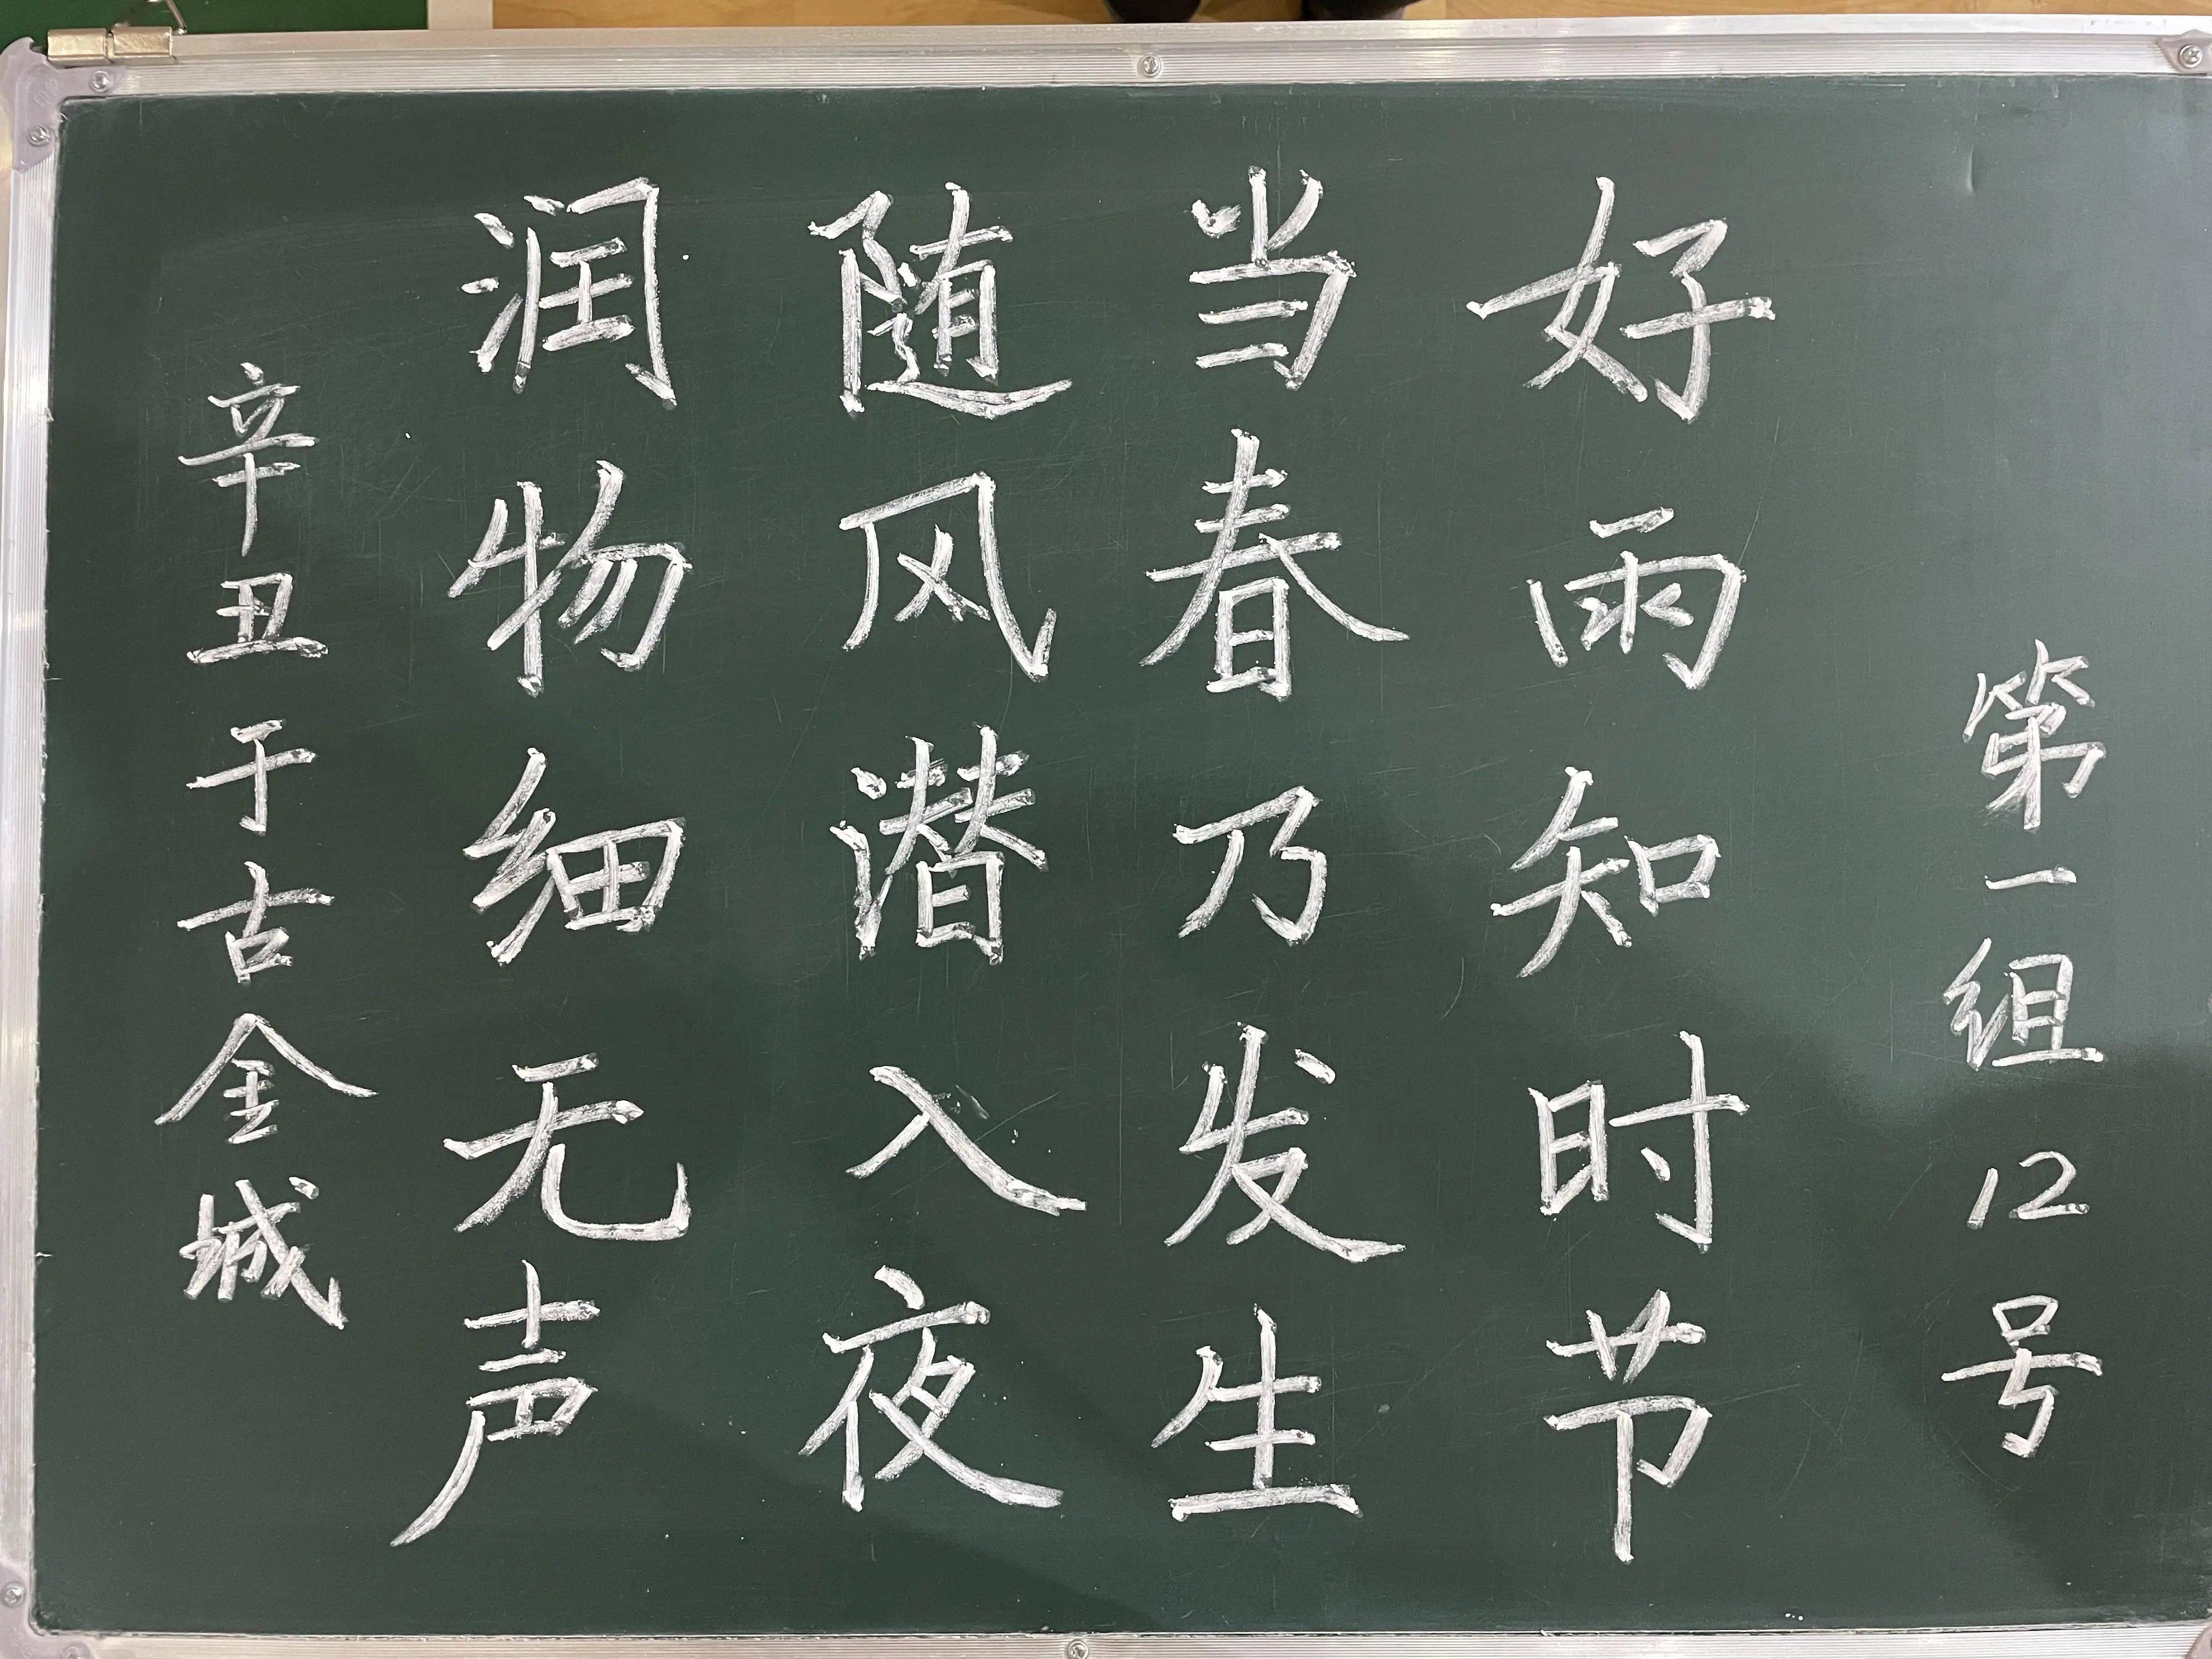 第一组12号
好雨知时节
当春乃发生
随风潜入夜
润物细无声
辛丑于古金城